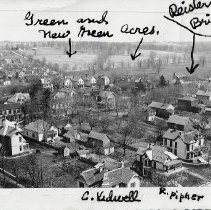 Green and
New Green Acres.
Reisler
Bri
C. Kidwell
R. Pipher